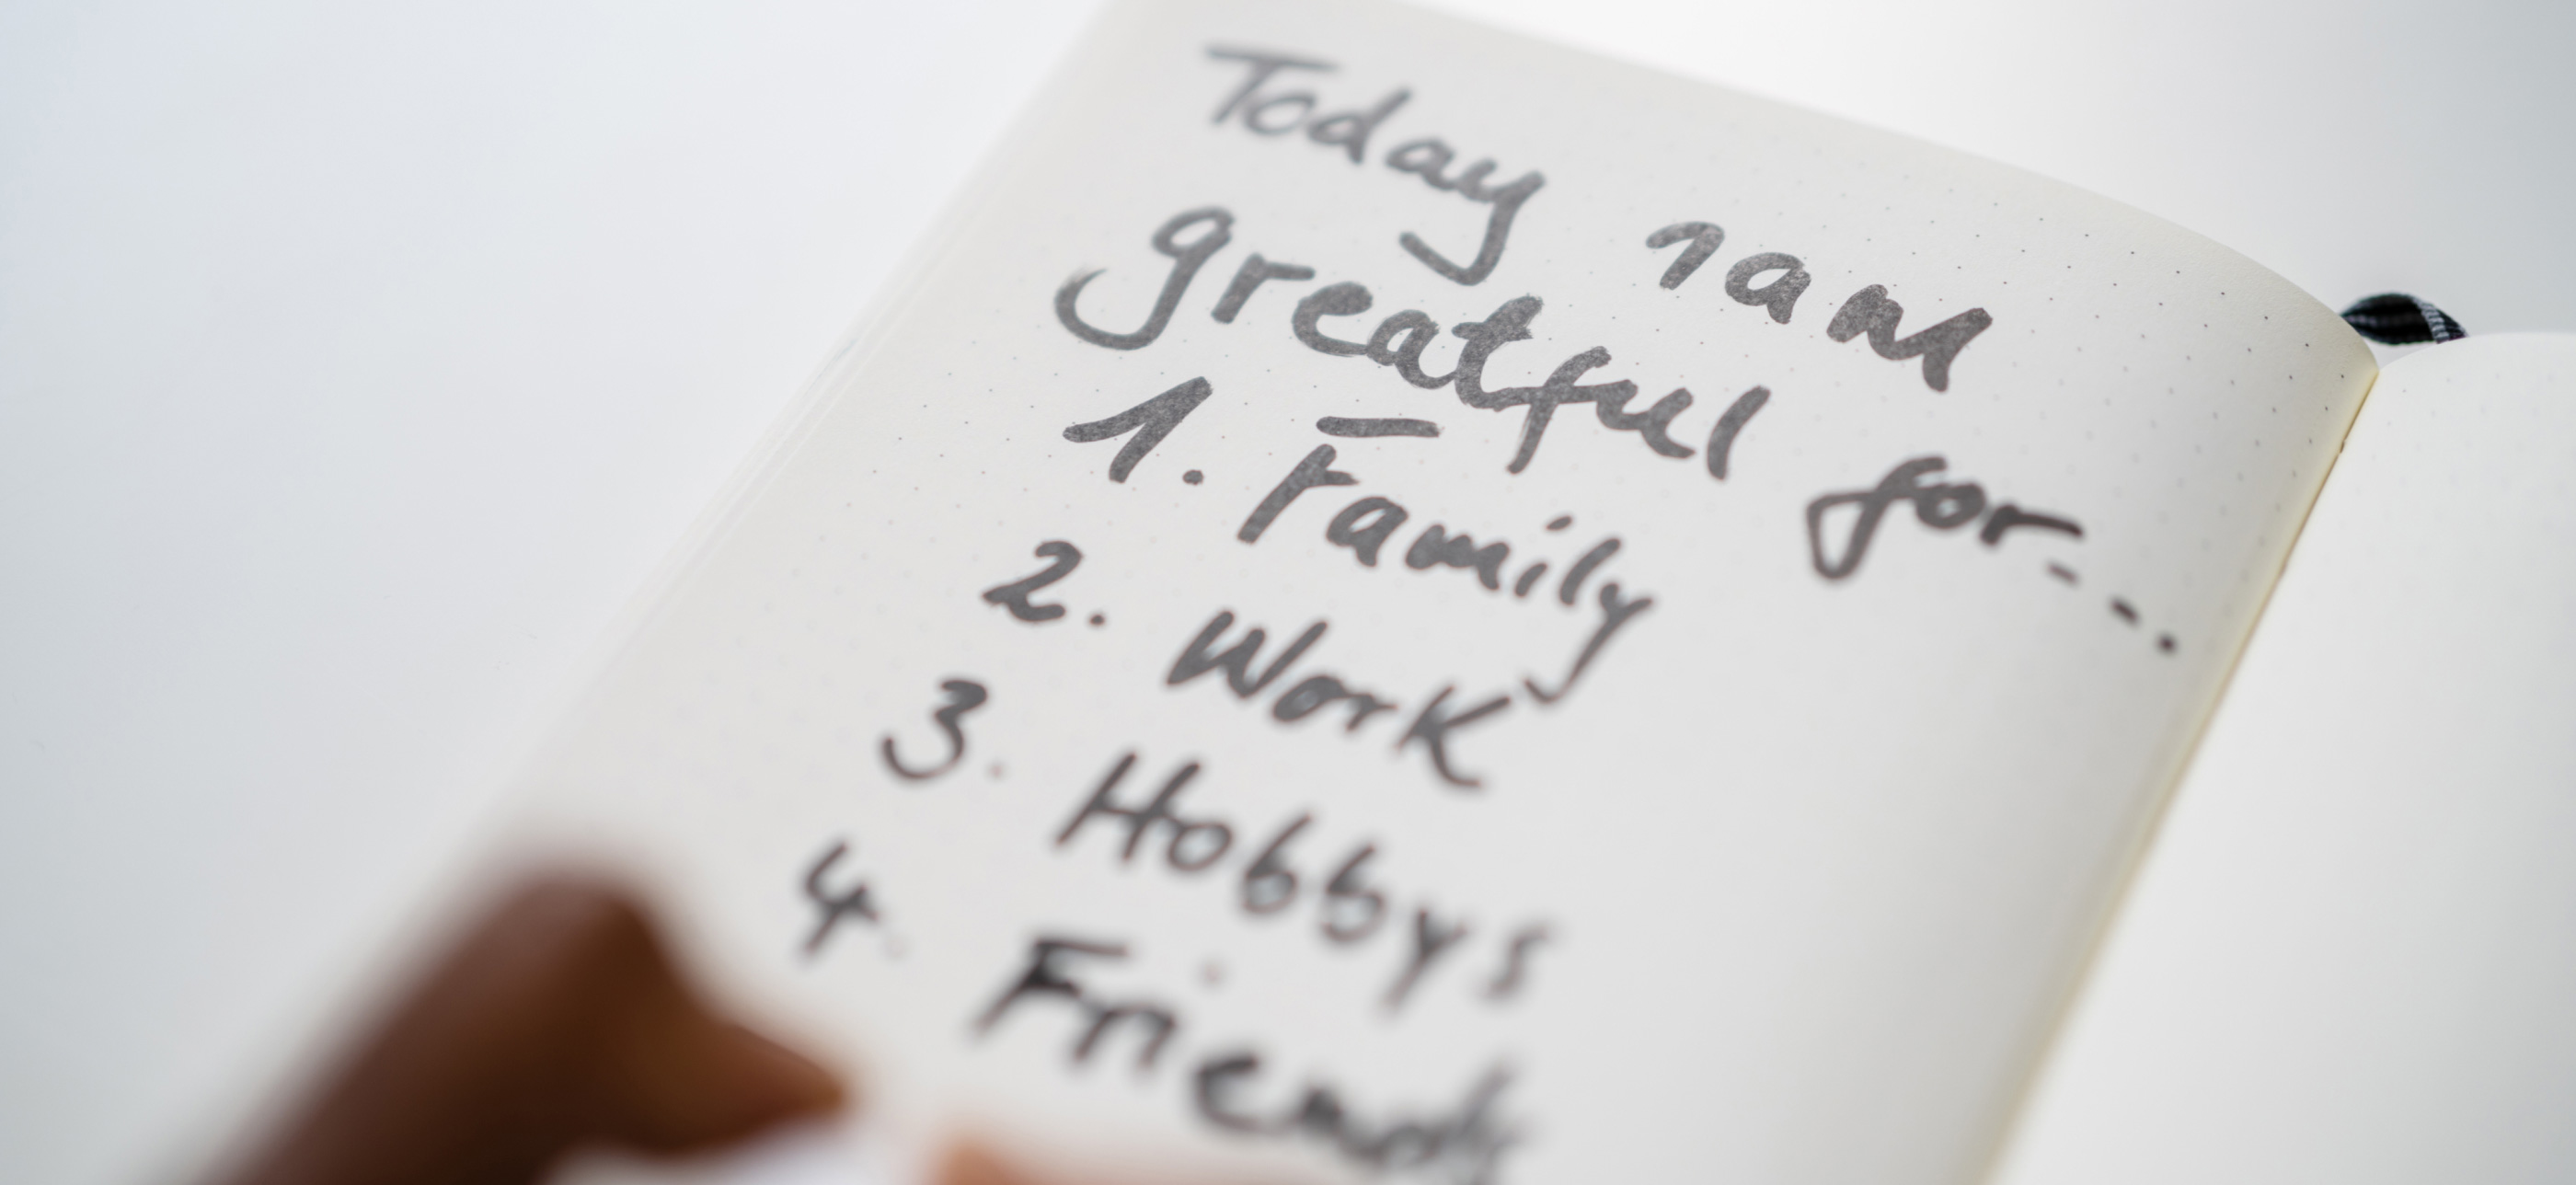 Today I am
greatful for...
1. Family
2. Work
3. Hobbys
4. Friends